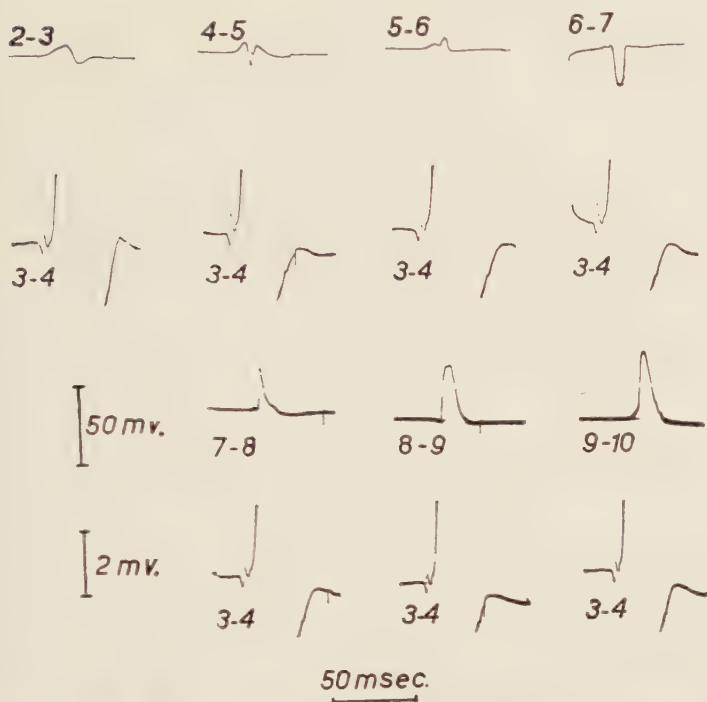 2-3 4-5 5-6 6-7
3-4 3-4 3-4 3-4
50 mv.
7-8 8-9 9-10
2 mv.
3-4 3-4 3-4
50 msec.